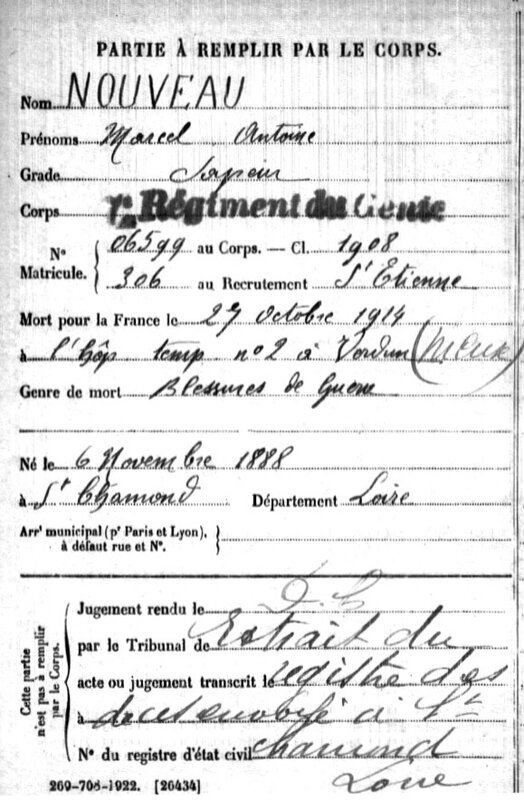 PARTIE À REMPLIR PAR LE CORPS.
Nom NOUVEAU
Prénoms Marcel Antoine
Grade Sapeur
Corps Régiment du Génie
Nº Matricule. 06599 au Corps. — Cl. 1908
306 au Recrutement St Etienne
Mort pour la France le 27 Octobre 1914
à l'hôp temp nº2 à Verdun (Meuse)
Genre de mort Blessures de Guerre
Né le 6 Novembre 1888
à St Chamond Département Loire
Arrt municipal (pr Paris et Lyon),
à défaut rue et Nº.
Cette partie n'est pas à remplir par le Corps.
Jugement rendu le
par le Tribunal de Extrait du
acte ou jugement transcrit le registre des
à à St
Nº du registre d'état civil Chamond
Loire
269-708-1922. [26434]